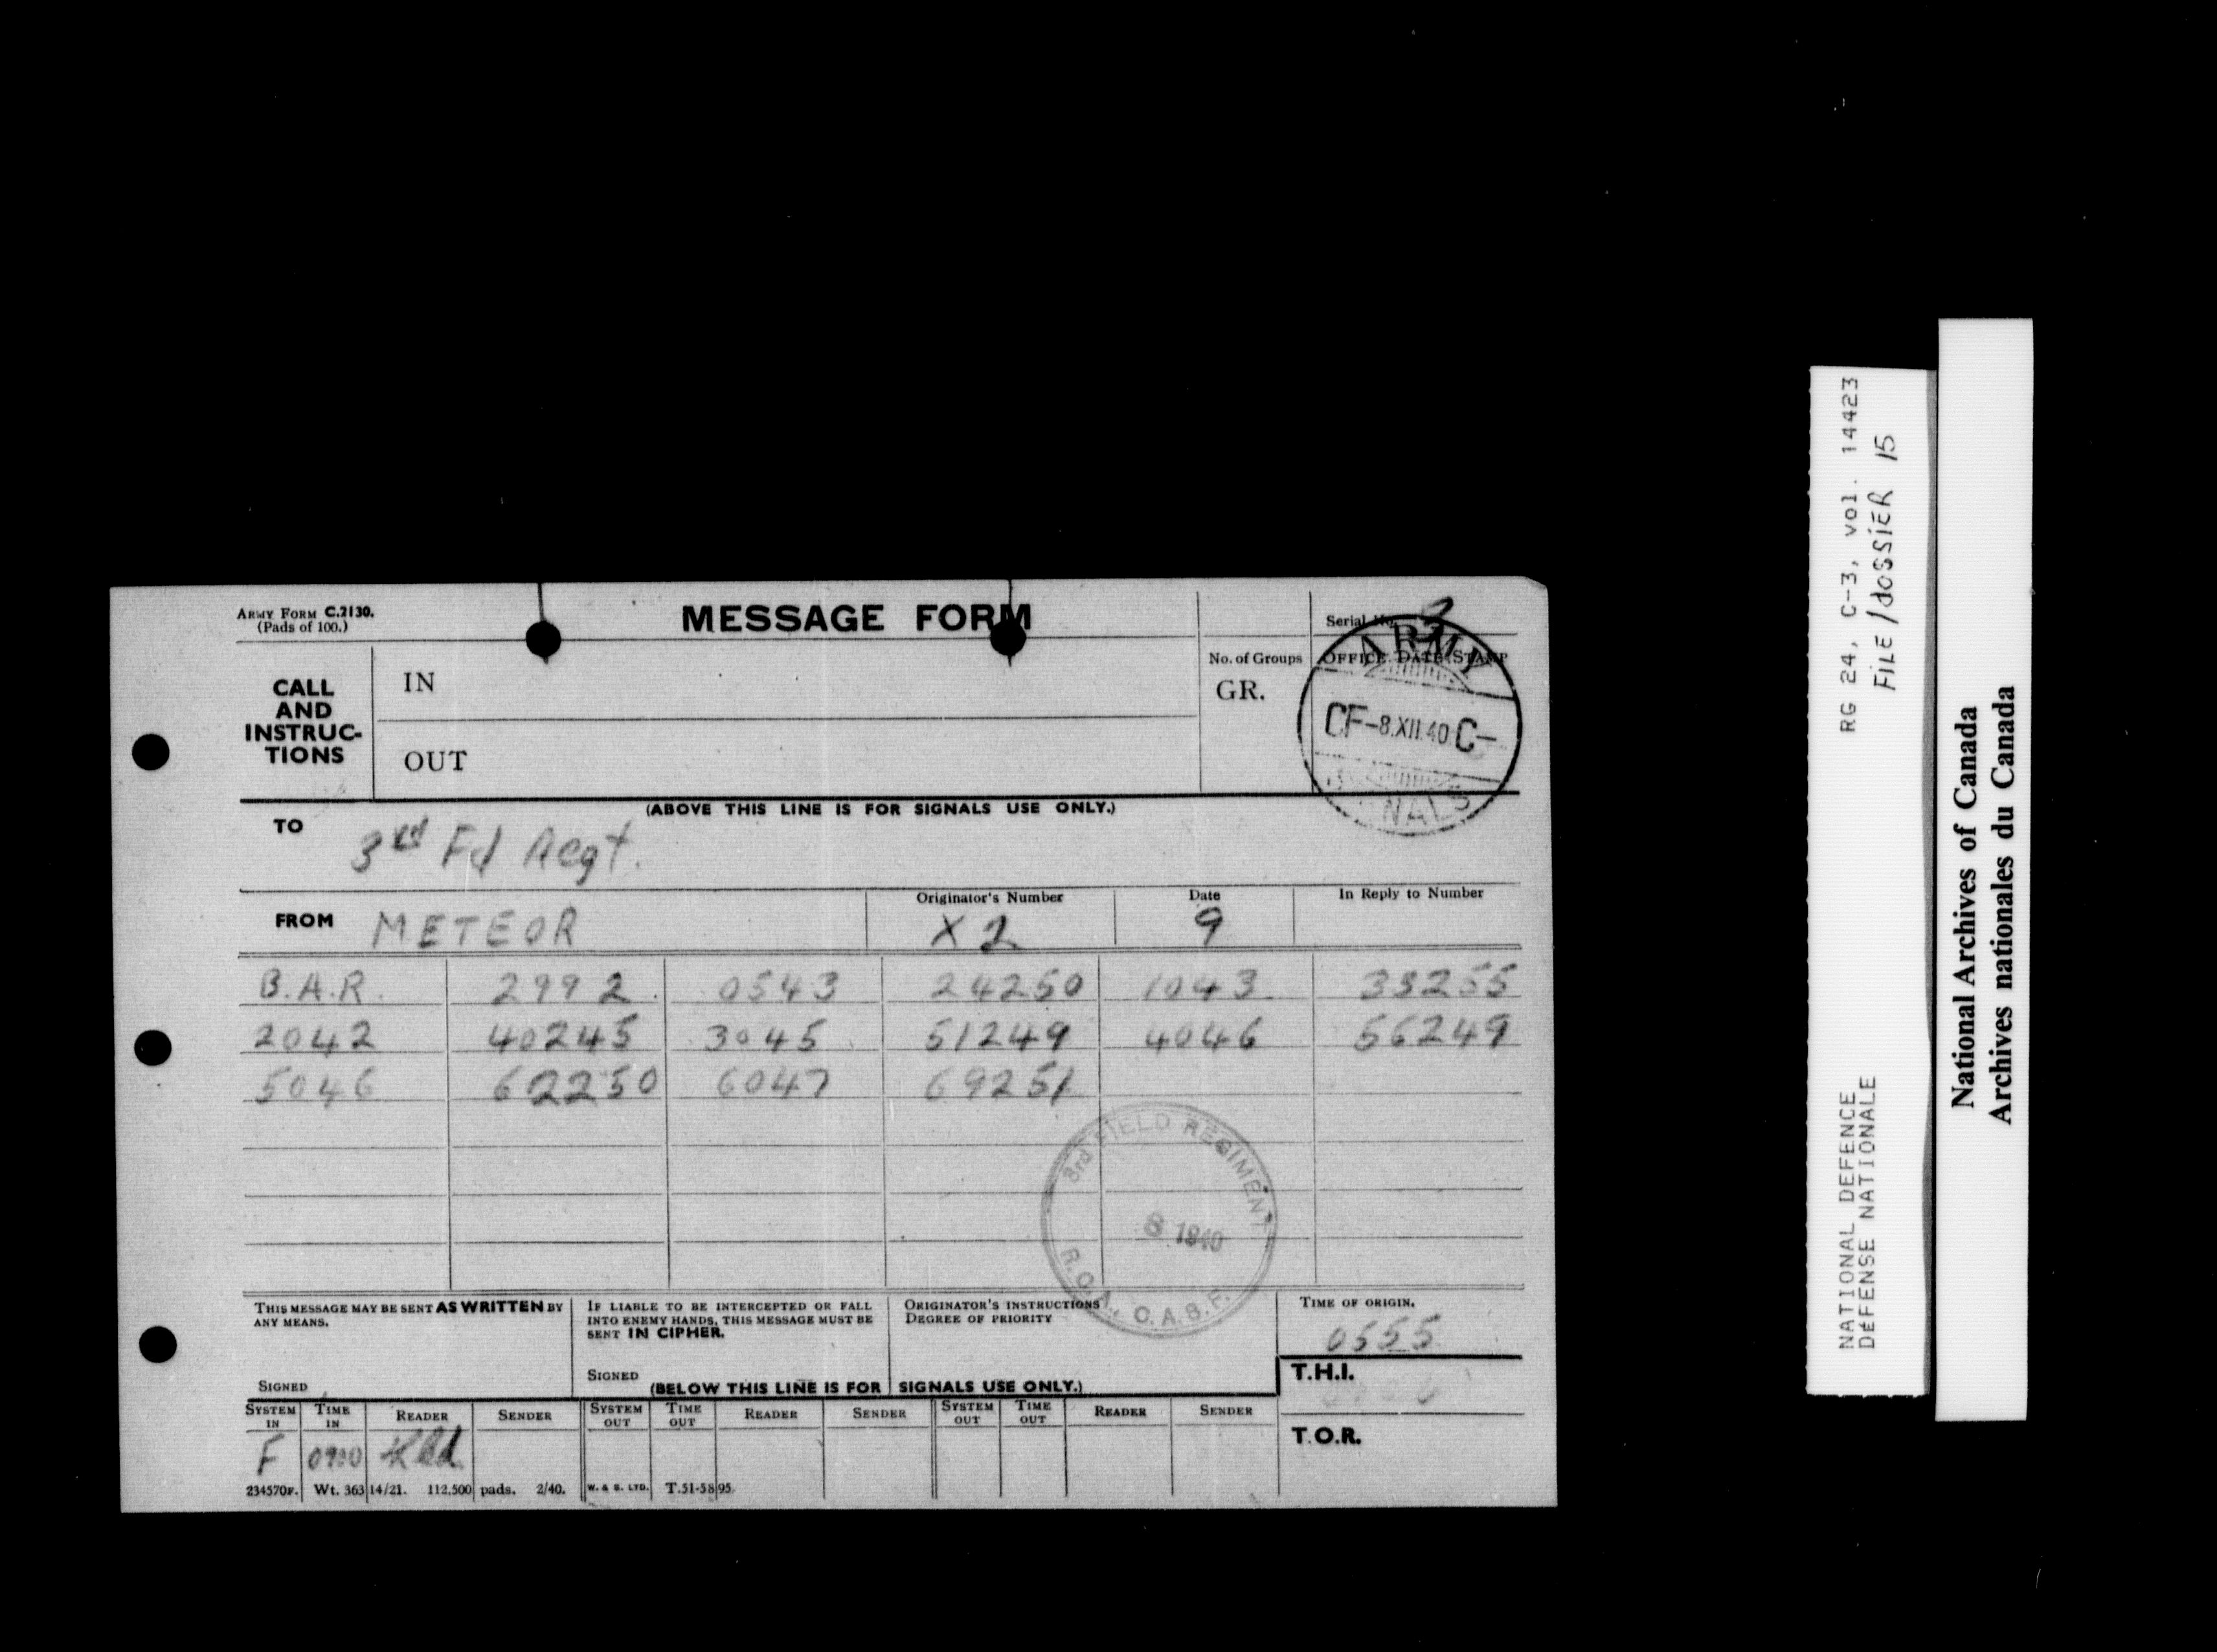 ARMY FORM C.2130.
(Pads of 100.)
MESSAGE FORM
Serial No.
No. of Groups
OFFICE DATE STAMP
CALL AND INSTRUC-TIONS
IN
GR.
OUT
ARMY
CF -8.XII.40 C-
(ABOVE THIS LINE IS FOR SIGNALS USE ONLY.)
TO 3rd Fd Regt.
FROM METEOR
Originator's Number X2
Date 9
In Reply to Number
B.A.R. 2992 0543 24250 1043 33255
2042 40245 3045 51249 4046 56249
5046 62250 6047 69251
3rd FIELD REGIMENT
8 1940
R.C.A., C.A.S.F.
THIS MESSAGE MAY BE SENT AS WRITTEN BY ANY MEANS.
SIGNED
IF LIABLE TO BE INTERCEPTED OR FALL INTO ENEMY HANDS, THIS MESSAGE MUST BE SENT IN CIPHER.
SIGNED
ORIGINATOR'S INSTRUCTIONS
DEGREE OF PRIORITY
TIME OF ORIGIN.
0555
T.H.I.
T.O.R.
(BELOW THIS LINE IS FOR SIGNALS USE ONLY.)
SYSTEM IN TIME IN READER SENDER SYSTEM OUT TIME OUT READER SENDER SYSTEM OUT TIME OUT READER SENDER
F 0900
234570F. Wt. 363 14/21. 112,500 pads. 2/40. W. & S. LTD. T.51-5895
RG 24, C-3, vol. 14423
FILE/dossiER 15
NATIONAL DEFENCE
DÉFENSE NATIONALE
National Archives of Canada
Archives nationales du Canada